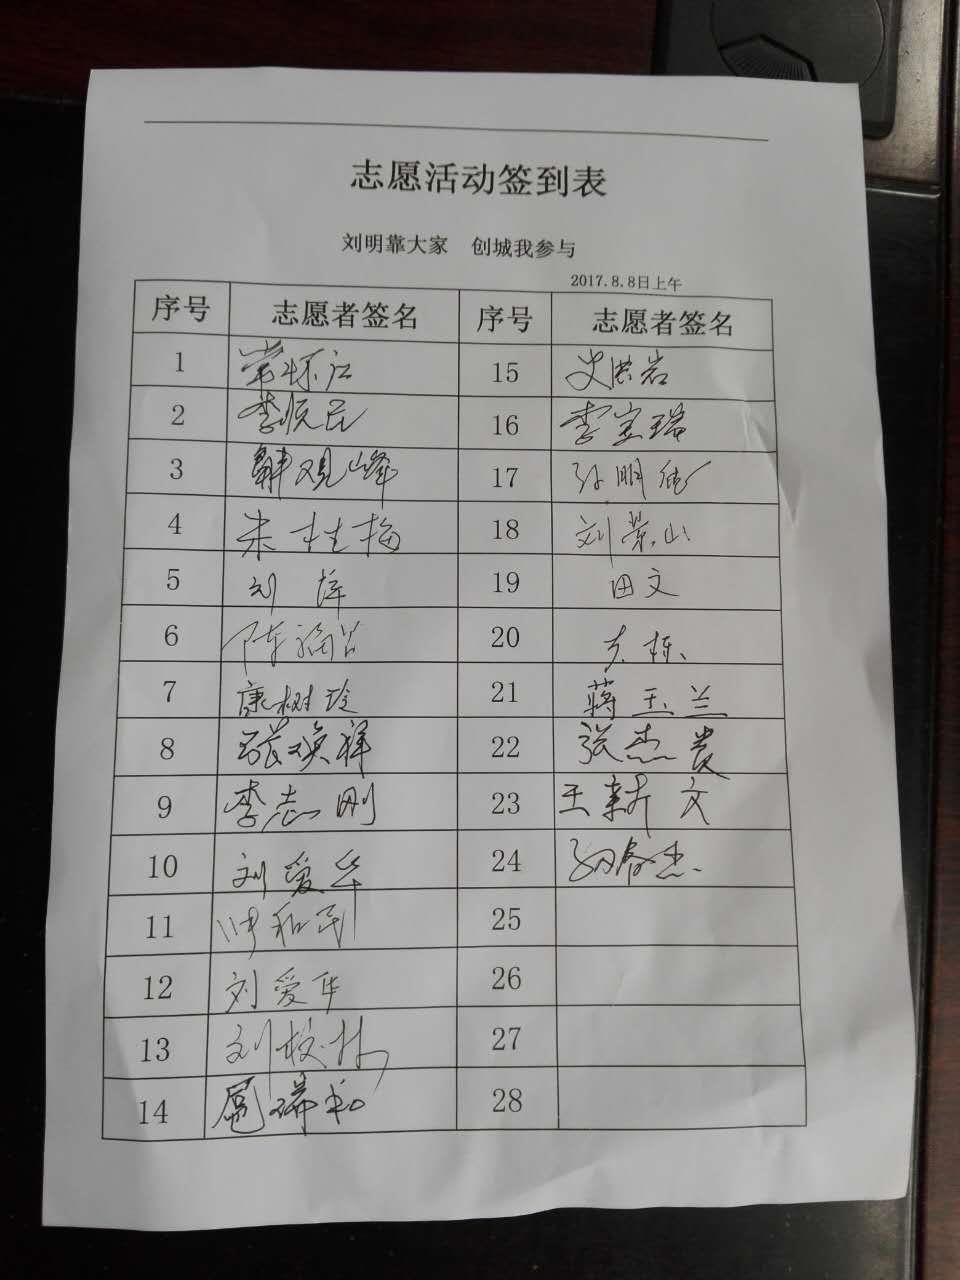 志愿活动签到表
刘明靠大家 创城我参与
2017.8.8日上午
序号 志愿者签名 序号 志愿者签名
1 常怀江 15 史洪岩
2 李顺民 16 李宝瑞
3 韩观峰 17 孙明德
4 朱桂梅 18 刘荣山
5 刘萍 19 田文
6 陈福 20 栋
7 康树玲 21 蒋玉兰
8 张焕祥 22 张杰贵
9 李志刚 23 王新文
10 刘爱华 24 春杰
11 和民 25
12 刘爱华 26
13 刘校林 27
14 瑞 28